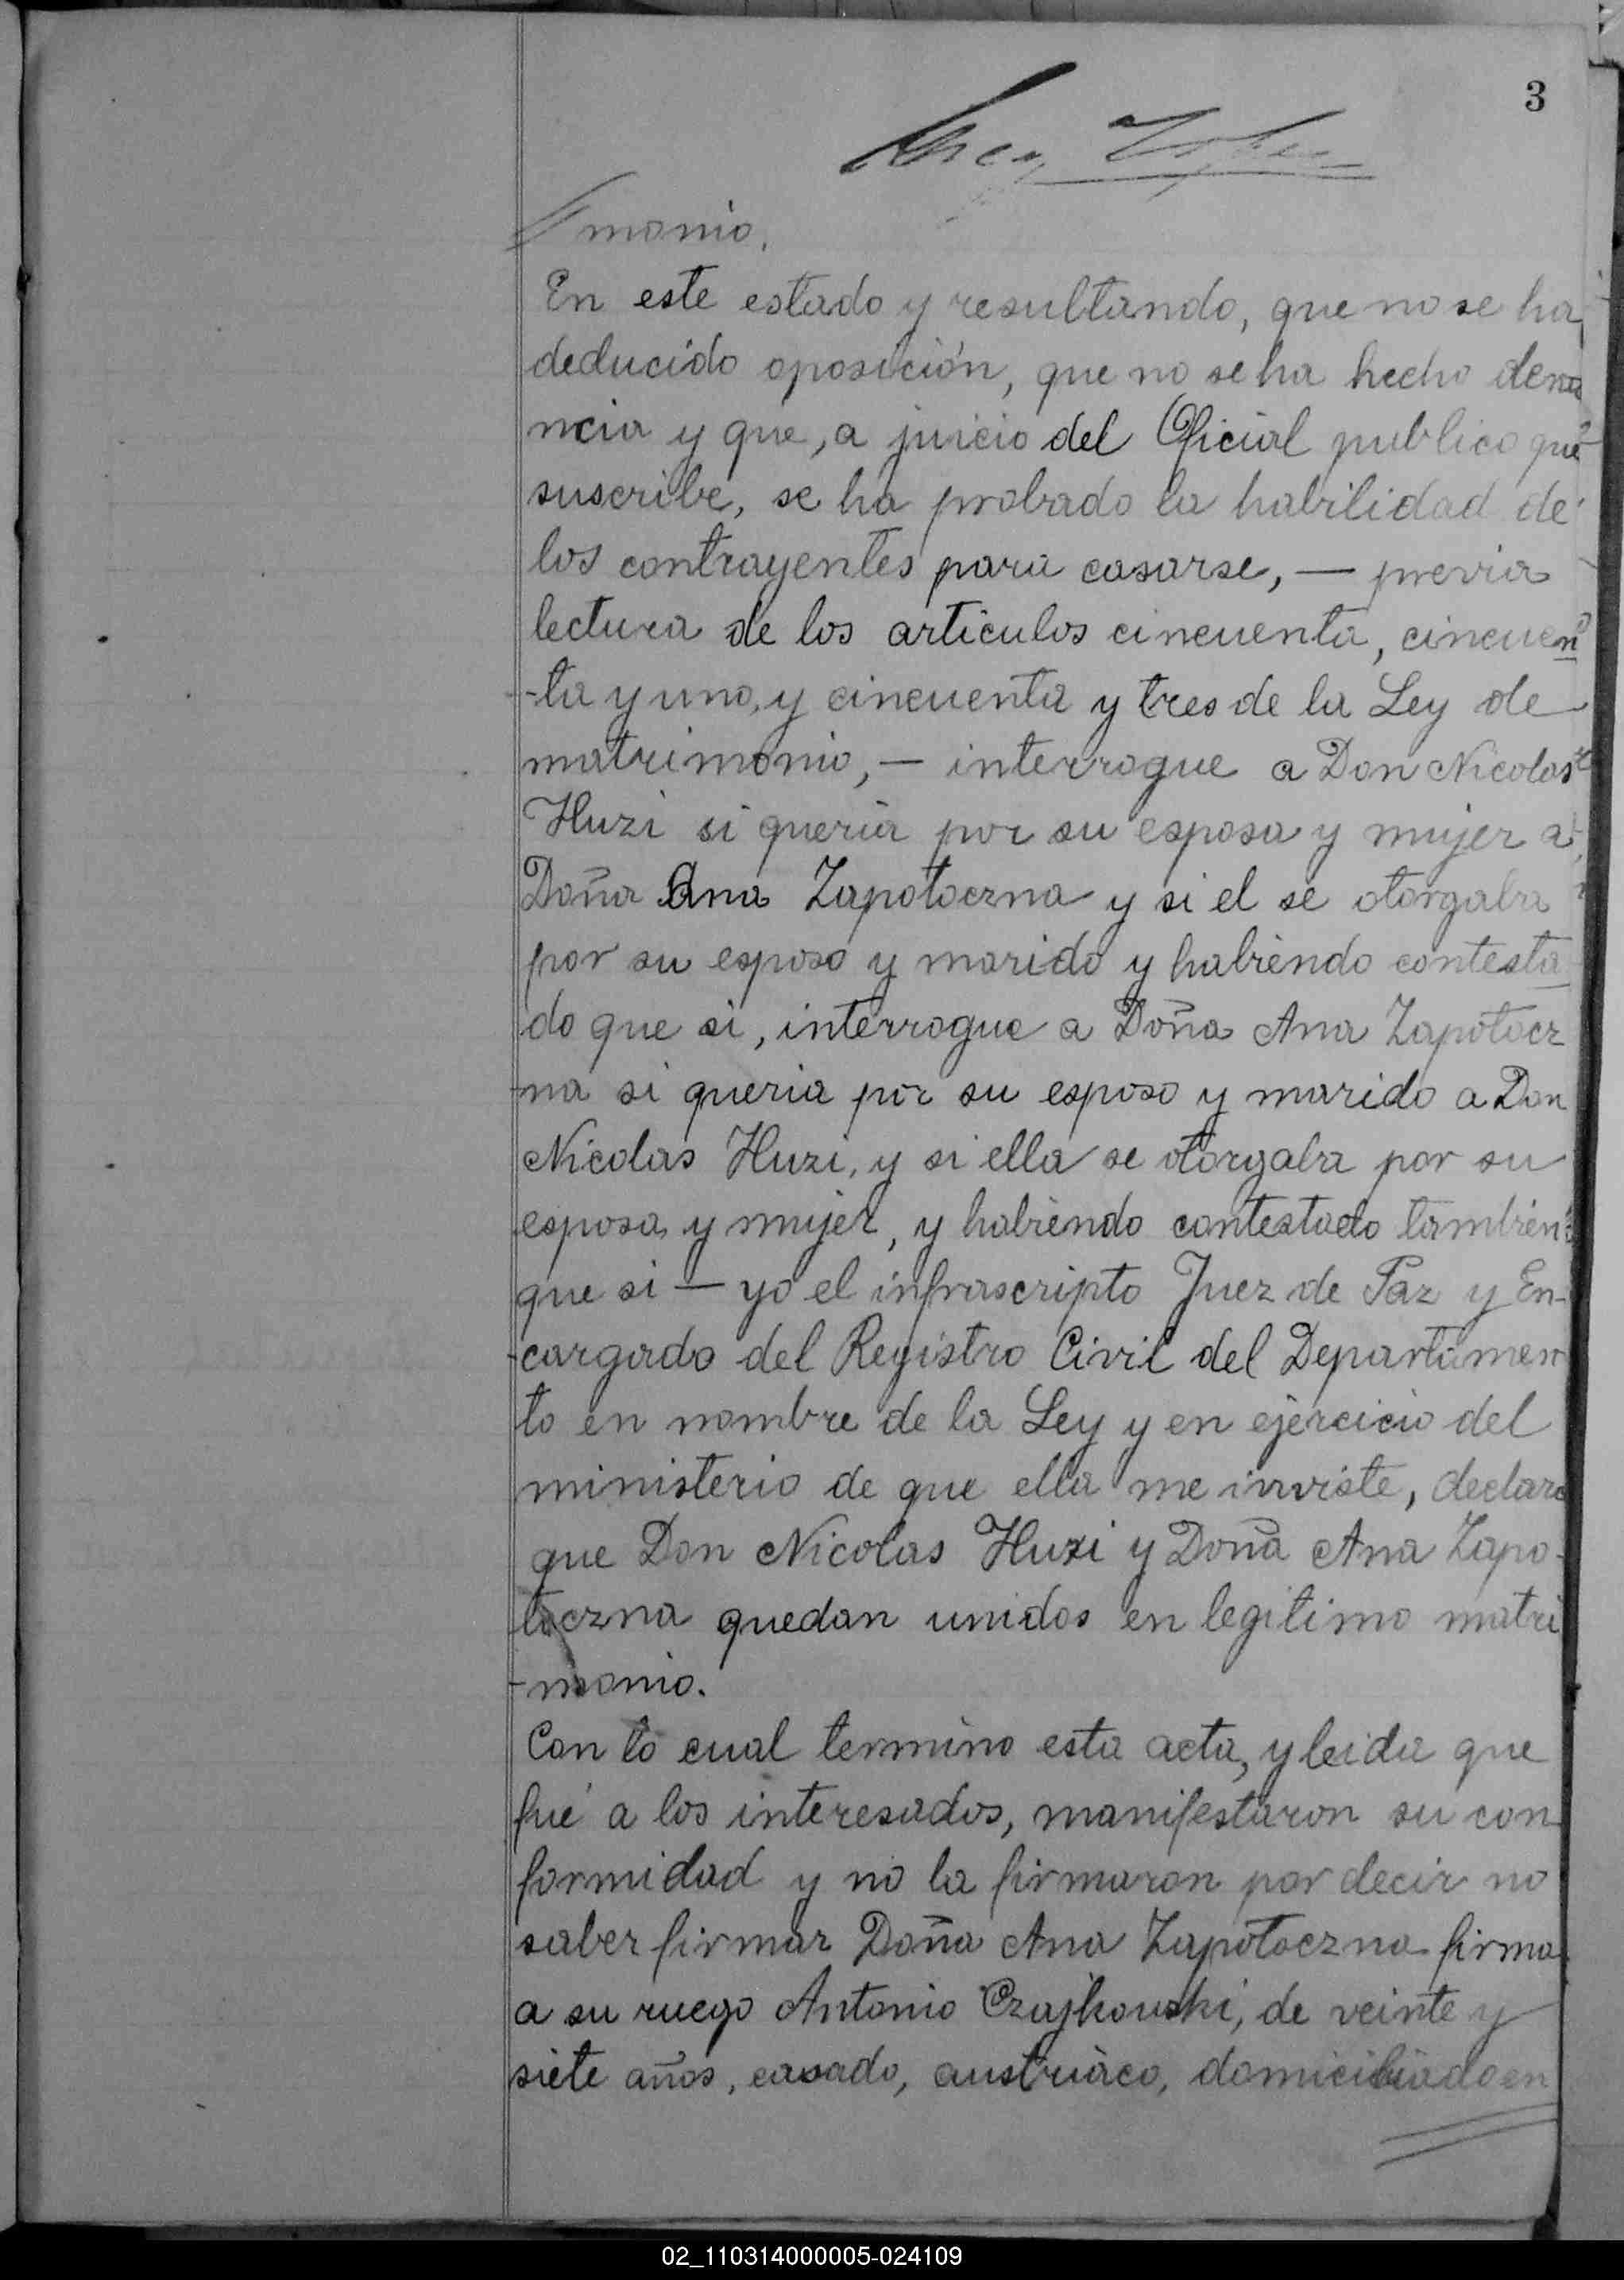 3
monio.
En este estado y resultando, que no se ha
deducido oposición, que no se ha hecho denu
ncia y que, a juicio del Oficial publico que
suscribe, se ha probado la habilidad de
los contrayentes para casarse, — previa
lectura de los articulos cincuenta, cincuen
-ta y uno, y cincuenta y tres de la Ley de
matrimonio, — interrogue a Don Nicolas
Huzi si queria por su esposa y mujer a
Doña Ana Zapotoczna y si el se otorgaba
por su esposo y marido y habiendo contesta
do que si, interrogue a Doña Ana Zapotocz
-na si queria por su esposo y marido a Don
Nicolas Huzi, y si ella se otorgaba por su
esposa y mujer, y habiendo contestado tambien
que si — yo el infrascripto Juez de Paz y En-
-cargado del Registro Civil del Departamen
to en nombre de la Ley y en ejercicio del
ministerio de que ella me inviste, declaro
que Don Nicolas Huzi y Doña Ana Zapo-
toczna quedan unidos en legitimo matri
-monio.
Con lo cual termino esta acta, y leida que
fué a los interesados, manifestaron su con
formidad y no la firmaron por decir no
saber firmar Doña Ana Zapotoczna firma
a su ruego Antonio Czajkowski, de veinte y
siete años, casado, austriaco, domiciliado en
02_110314000005-024109